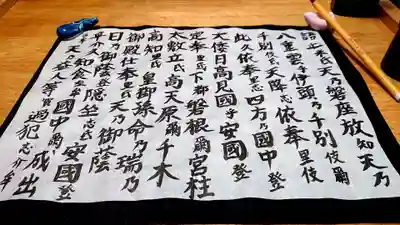 語止米氐天乃磐座放知天乃
八重雲乎伊頭乃千別伎爾
千別伎氐天降志依奉里伎
此久依奉里志四方乃國中登
大倭日高見國乎安國登
定奉里氐下都磐根爾宮柱
太敷立氐高天原爾千木
高知里氐皇御孫命乃瑞乃
御殿仕奉里氐天乃御蔭
日乃御蔭登隠坐志氐安國登
平介久知食左牟國中爾成出
天乃益人等賀過犯志介牟